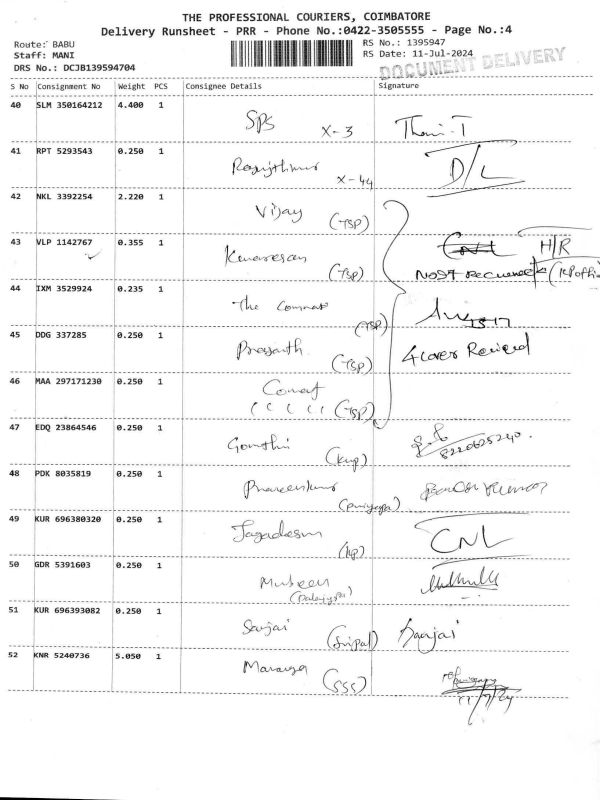 THE PROFESSIONAL COURIERS, COIMBATORE
Delivery Runsheet - PRR - Phone No.:0422-3505555 - Page No.:4
Route: BABU
RS No.: 1395947
Staff: MANI
RS Date: 11-Jul-2024
DRS No.: DCJB139594704
DOCUMENT DELIVERY
S No Consignment No Weight PCS Consignee Details Signature
40 SLM 350164212 4.400 1
SPS X-3
41 RPT 5293543 0.250 1
X-44 D/L
42 NKL 3392254 2.220 1
Vijay (TSP)
43 VLP 1142767 0.355 1
Kumaresan (TSP) H/R
44 IXM 3529924 0.235 1
The (TSP)
45 DDG 337285 0.250 1
Prasanth (TSP)
4 cover
46 MAA 297171230 0.250 1
(TSP)
47 EDQ 23864546 0.250 1
Gomthi
48 PDK 8035819 0.250 1
49 KUR 696380320 0.250 1
CNL
50 GDR 5391603 0.250 1
51 KUR 696393082 0.250 1
Sanjai Sanjai
52 KNR 5240736 5.050 1
(SSS)
11/7/24